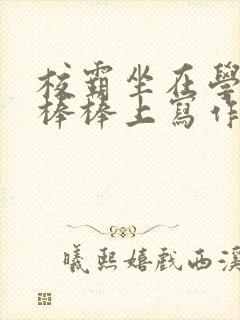 校霸坐在學
棒棒上寫作
曦熙嬉戲西溪